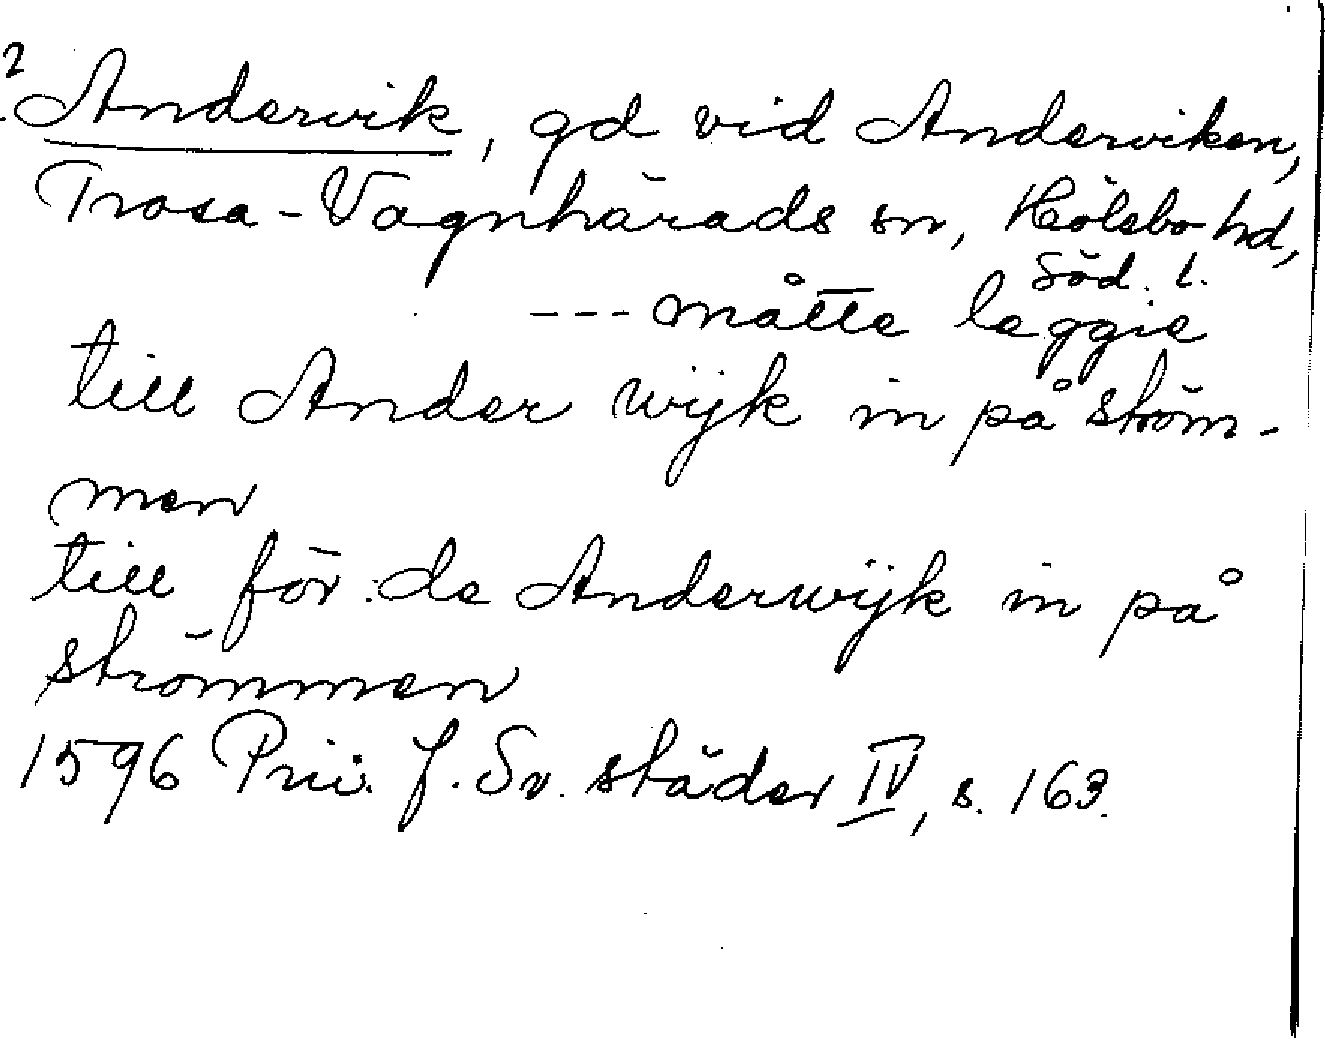 ? Andervik, gd vid Anderviken,
Trosa-Vagnhärads sn, Hölebo hd,
Söd. l.
--- måtte leggie
till Ander wijk in på ström-
men
till för: de Anderwijk in på
strömmen
1596 Priv. f. Sv. städer IV, s. 163.